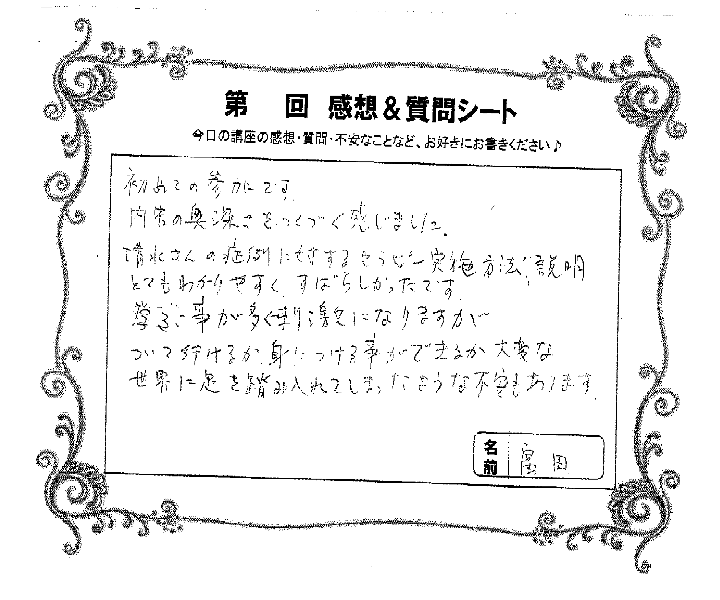 第　回 感想&質問シート
今日の講座の感想・質問・不安なことなど、お好きにお書きください♪
初めての参加です。
内容の奥深さをつくづく感じました。
清水さんの症例に対するセラピー実施方法、説明
とてもわかりやすく、すばらしかったです。
学ぶ事が多く刺激になりますが
ついて行けるか、身につける事ができるか大変な
世界に足を踏み入れてしまったような不安もあります。
名前 富田